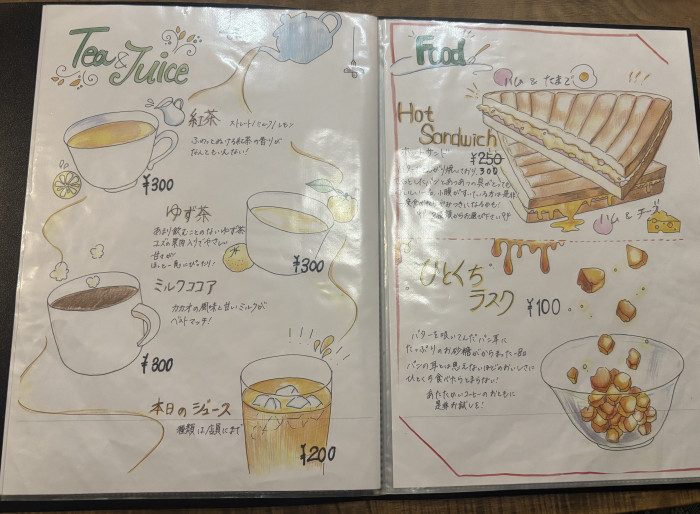 Tea & Juice
紅茶 ストレート/ミルク/レモン
ふわっとぬける紅茶の香りが
なんともいえない!
¥300
ゆず茶
あまり飲むことのないゆず茶
ユズの果肉入りでやさしい
甘さが
ほっと一息にぴったり!
¥300
ミルクココア
カカオの風味と甘いミルクが
ベストマッチ!
¥300
本日のジュース
種類は店員にまで
¥200
Food
ハム & たまご
Hot
Sandwich
ホットサンド
¥250
300
ハム & チーズ
ひとくち
ラスク ¥100
バターを吸いこんだパン耳に
たっぷりのお砂糖がからまった一品
パンの耳とは思えないほどのおいしさに
ひとくち食べたらとまらない!
あたたかいコーヒーのおともに
是非お試しを!